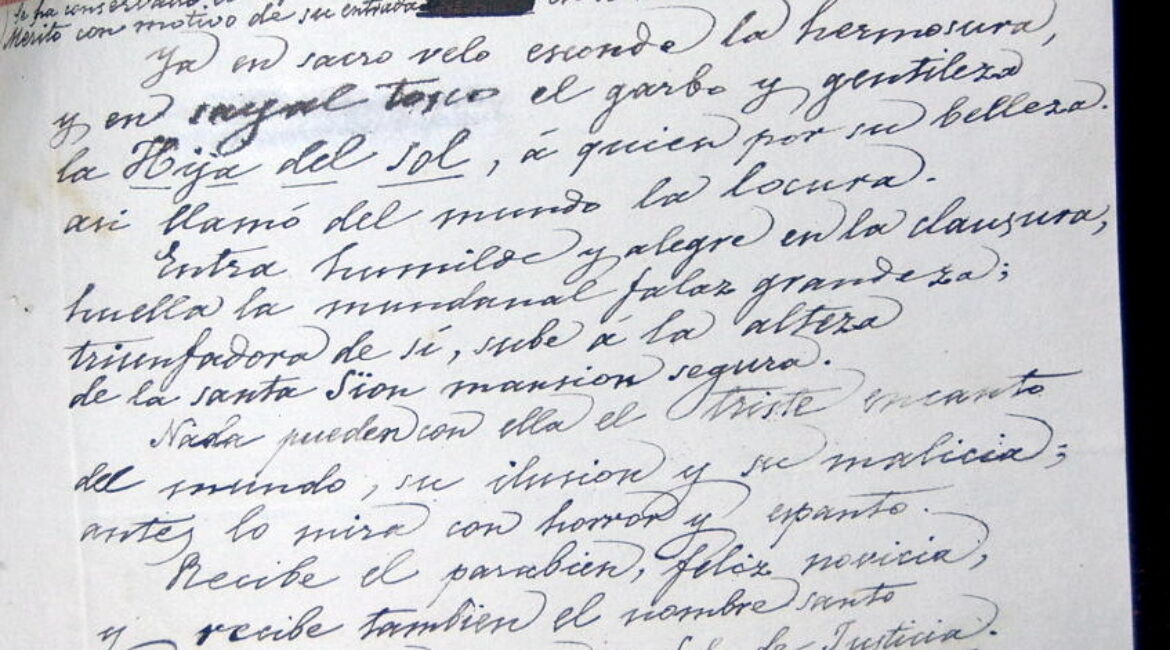 se ha conservado
Mérito con motivo de su entrada
Ya en sacro velo esconde la hermosura,
y en sayal tosco el garbo y gentileza
la Hija del sol, á quien por su belleza.
asi llamó del mundo la locura.
Entra humilde y alegre en la clausura,
huella la mundanal falaz grandeza;
triunfadora de sí, sube á la alteza
de la santa Sïon mansion segura.
Nada pueden con ella el triste encanto
del mundo, su ilusion y su malicia;
antes lo mira con horror y espanto.
Recibe el parabien, feliz novicia,
y recibe tambien el nombre santo
de Justicia.